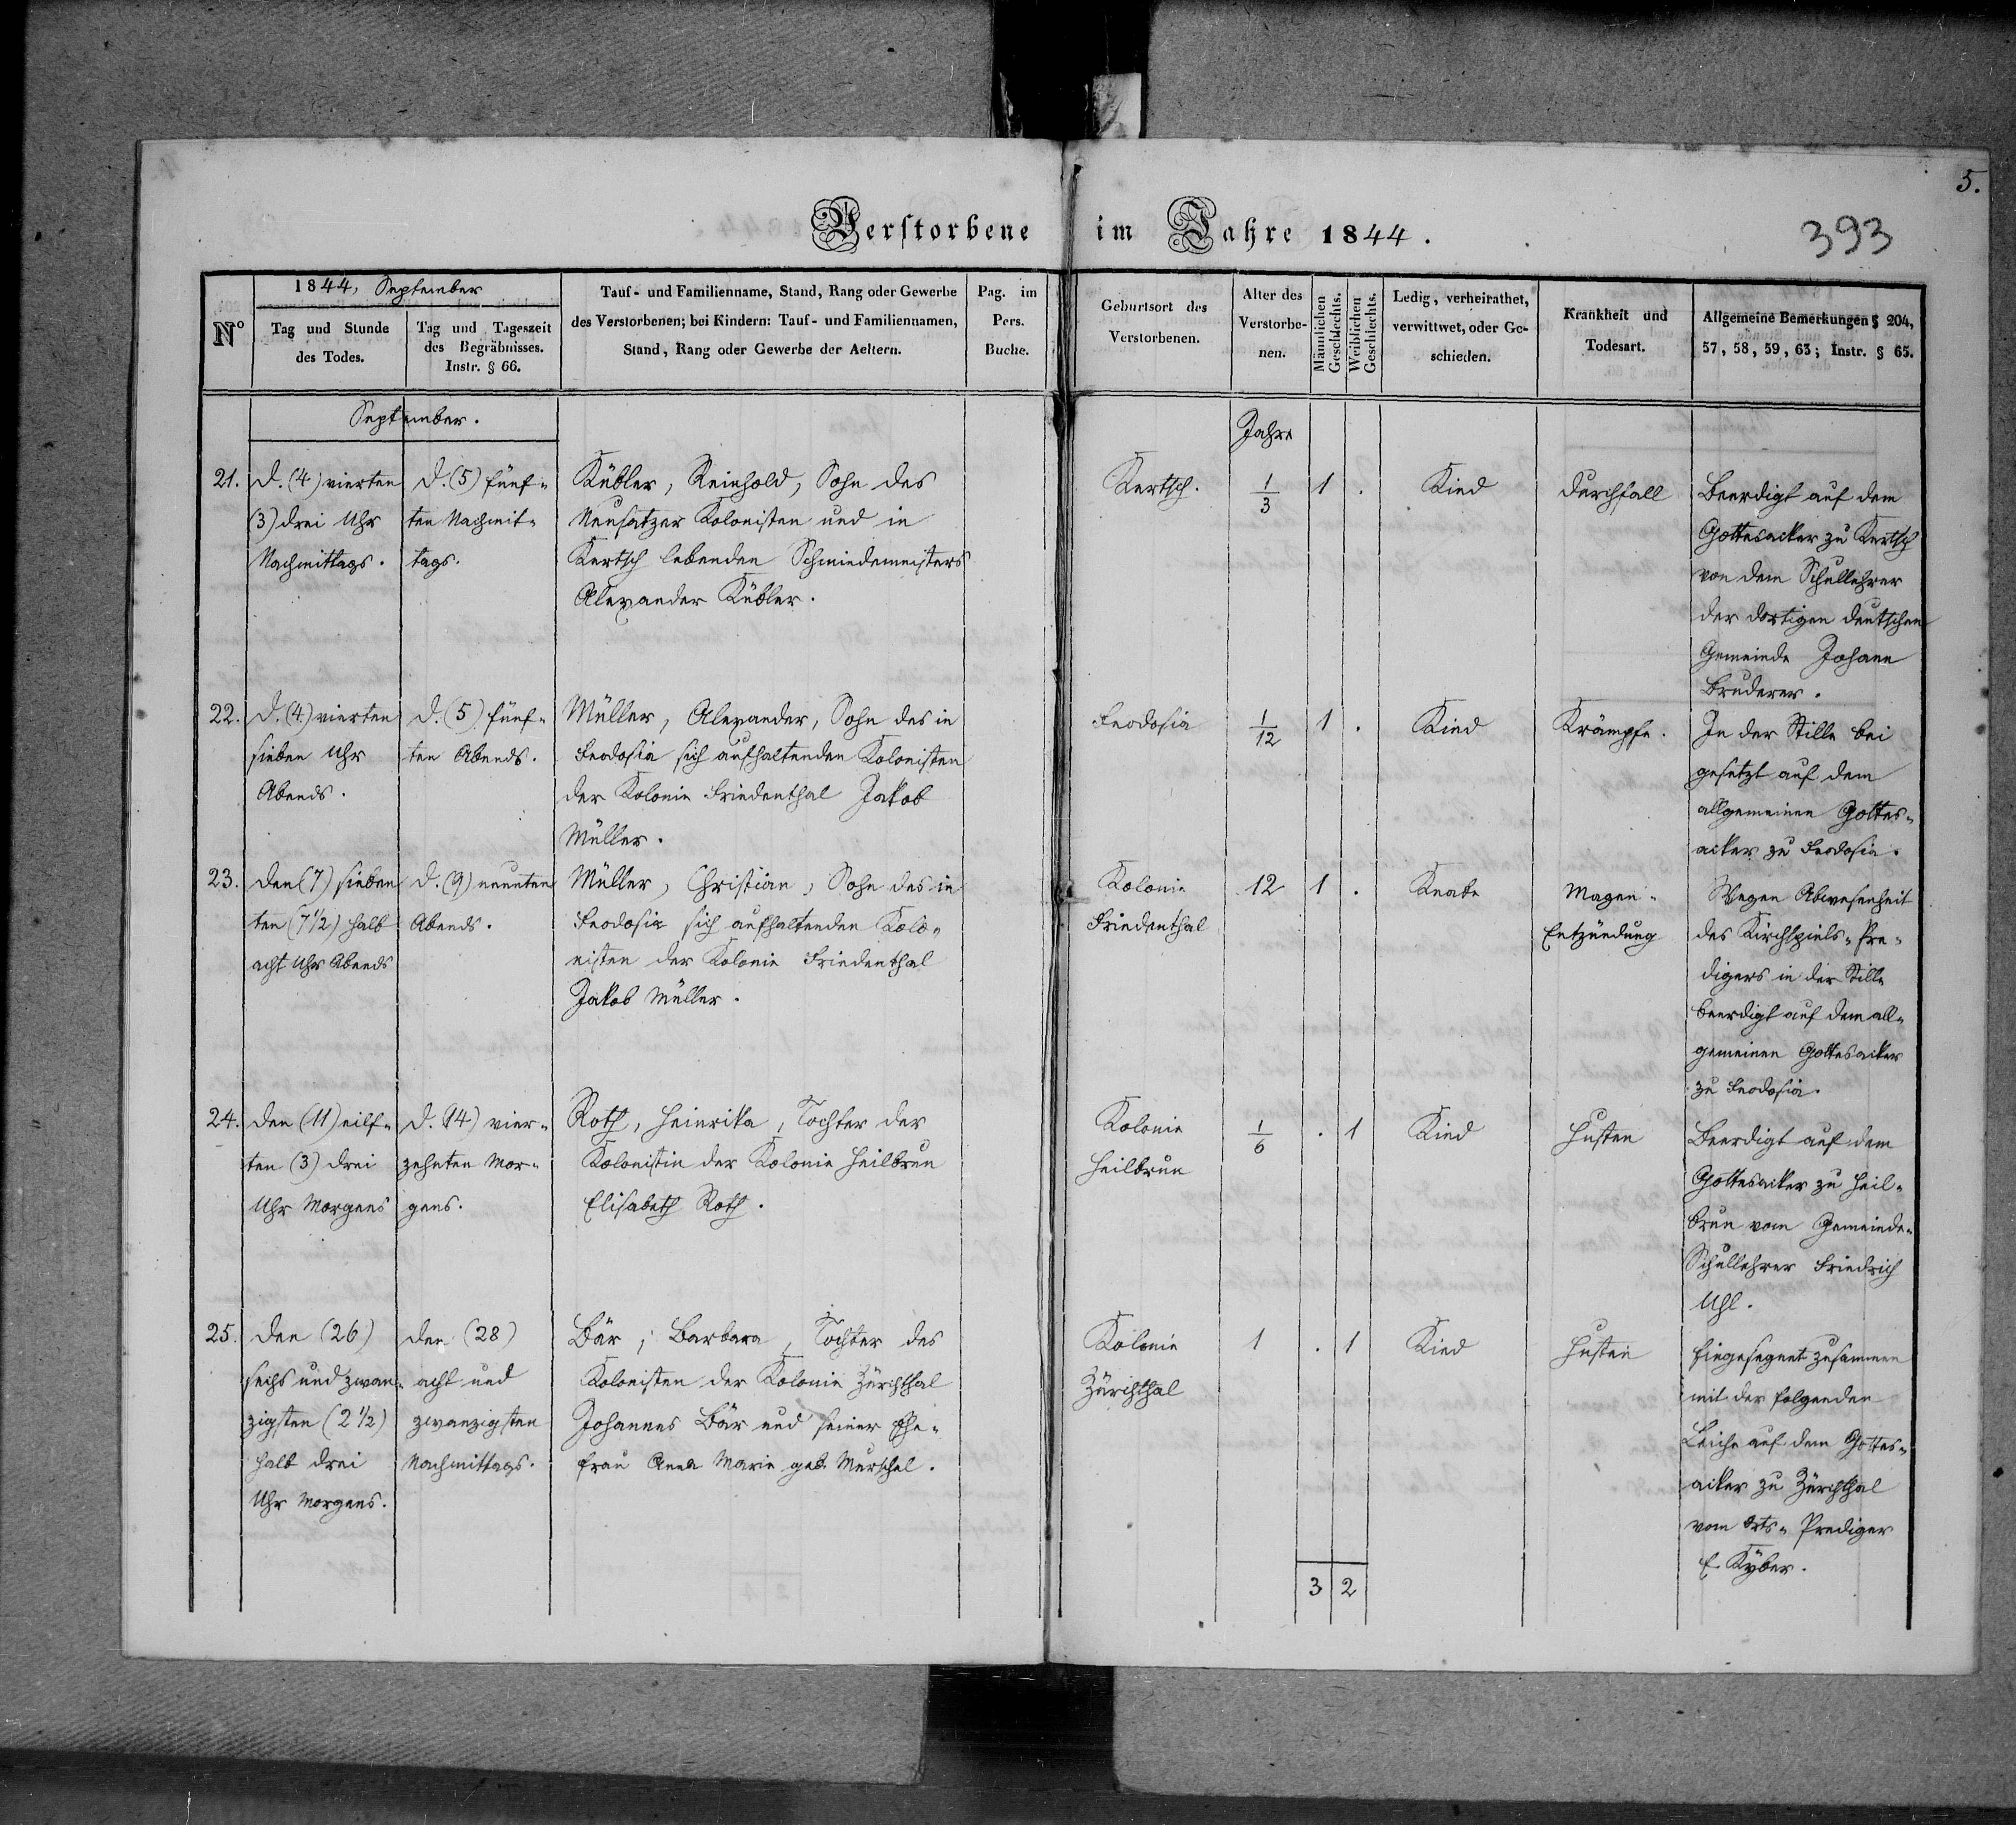 5.
Verstorbene im Jahre 1844.
393
1844, September
Nº
Tag und Stunde
des Todes.
Tag und Tageszeit
des Begräbnisses.
Instr. § 66.
Tauf- und Familienname, Stand, Rang oder Gewerbe
des Verstorbenen; bei Kindern: Tauf- und Familiennamen,
Stand, Rang oder Gewerbe der Aeltern.
Pag. im
Pers.
Buche.
Geburtsort des
Verstorbenen.
Alter des
Verstorbe-
nen.
Männlichen
Geschlechts.
Weiblichen
Geschlechts.
Ledig, verheirathet,
verwittwet, oder Ge-
schieden.
Krankheit und
Todesart.
Allgemeine Bemerkungen § 204,
57, 58, 59, 63; Instr. § 65.
September.
Jahre
21.
d. (4) vierten
(3) drei Uhr
Nachmittags.
d. (5) fünf-
ten Nachmit-
tags.
Kübler, Reinhold, Sohn des
Neusatzer Kolonisten und in
Kertsch lebenden Schmiedemeisters
Alexander Kübler.
Kertsch.
1/3
1
.
Kind
Durchfall
Beerdigt auf dem
Gottesacker zu Kertsch
von dem Schullehrer
der dortigen deutschen
Gemeinde Johann
Bruderer.
22.
d. (4) vierten
sieben Uhr
Abends.
d. (5) fünf-
ten Abends.
Müller, Alexander, Sohn des in
Feodosia sich aufhaltenden Kolonisten
der Kolonie Friedenthal Jakob
Müller.
Feodosia
1/12
1
.
Kind
Krämpfe.
In der Stille bei
gesetzt auf dem
allgemeinen Gottes-
acker zu Feodosia.
23.
den (7) sieben
ten (7 1/2) halb
acht Uhr Abends
d. (9) neunten
Abends.
Müller, Christian, Sohn des in
Feodosia sich aufhaltenden Kolo-
nisten der Kolonie Friedenthal
Jakob Müller.
Kolonie
Friedenthal
12
1
.
Knabe
Magen-
Entzündung
Wegen Abwesenheit
des Kirchspiels-Pre-
digers in der Stille
beerdigt auf dem all-
gemeinen Gottesacker
zu Feodosia.
24.
den (11) eilf-
ten (3) drei
Uhr Morgens
d. (14) vier-
zehnten Mor-
gens.
Roth, Heinrika, Tochter der
Kolonistin der Kolonie Heilbrun
Elisabeth Roth.
Kolonie
Heilbrun
1/6
.
1
Kind
Husten
Beerdigt auf dem
Gottesacker zu Heil-
brun vom Gemeinde-
Schullehrer Friedrich
Uhl.
25.
den (26)
sechs und zwan-
zigsten (2 1/2)
halb drei
Uhr Morgens.
den (28)
acht und
zwanzigsten
Nachmittags.
Bär, Barbara, Tochter des
Kolonisten der Kolonie Zürichthal
Johannes Bär und seiner Ehe-
frau Anna Marie geb. Murschel.
Kolonie
Zürichthal
1
.
1
Kind
Husten
Eingesegnet zusammen
mit der folgenden
Leiche auf dem Gottes-
acker zu Zürchthal
vom Orts-Prediger
E. Kyber.
3 2